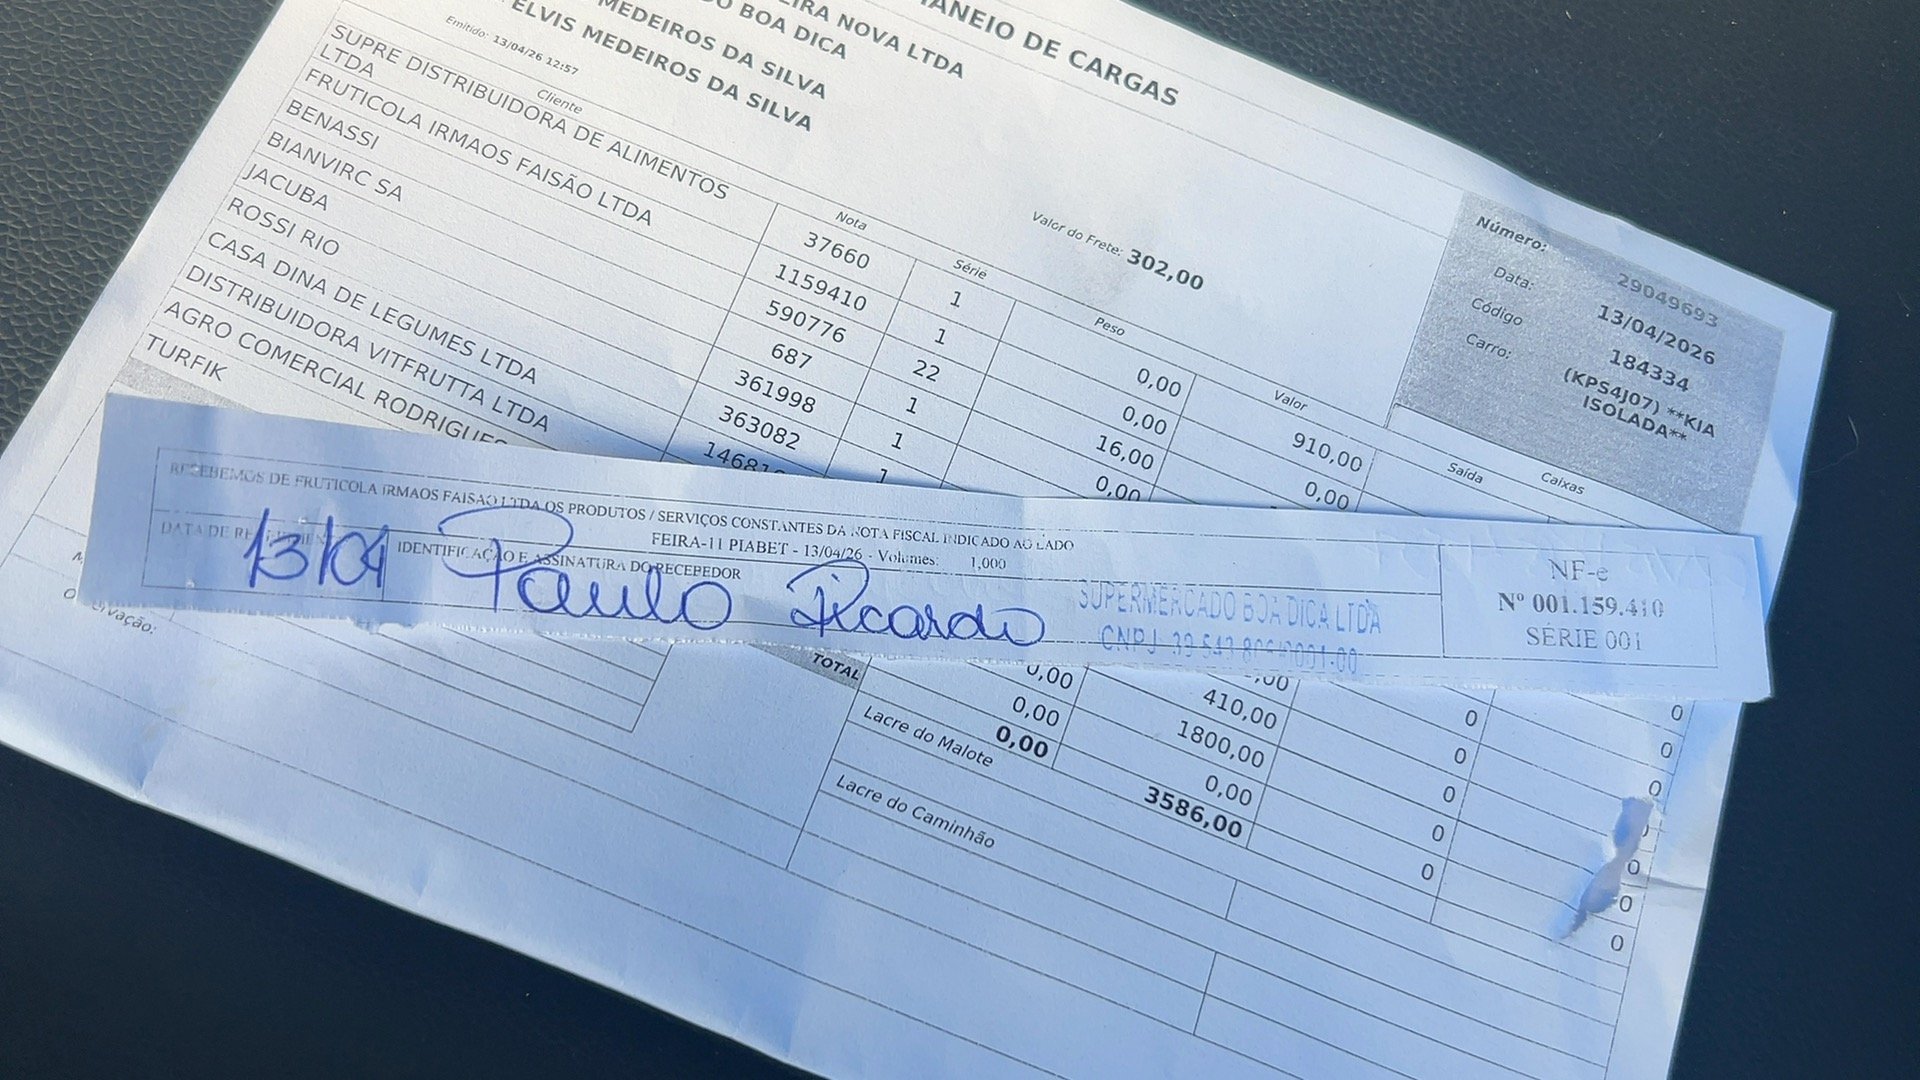 MANEIO DE CARGAS
IRA NOVA LTDA
BOA DICA
MEDEIROS DA SILVA
ELVIS MEDEIROS DA SILVA
Emitido: 13/04/26 12:57
Valor do Frete: 302,00
Número: 29049693
Data: 13/04/2026
Código 184334
Carro: (KPS4J07) **KIA
ISOLADA**
Cliente Nota Série Peso Valor Saída Caixas
SUPRE DISTRIBUIDORA DE ALIMENTOS LTDA 37660 1 0,00 910,00
FRUTICOLA IRMAOS FAISÃO LTDA 1159410 1 0,00 0,00
BENASSI 590776 22 16,00
BIANVIRC SA 687 1 0,00
JACUBA 361998 1
ROSSI RIO 363082 1
CASA DINA DE LEGUMES LTDA
DISTRIBUIDORA VITFRUTTA LTDA
AGRO COMERCIAL RODRIGUES
TURFIK
RECEBEMOS DE FRUTICOLA IRMAOS FAISAO LTDA OS PRODUTOS / SERVIÇOS CONSTANTES DA NOTA FISCAL INDICADO AO LADO
FEIRA-11 PIABET - 13/04/26 - Volumes: 1,000
DATA DE RECEBIMENTO IDENTIFICAÇÃO E ASSINATURA DO RECEPEDOR
13/04 Paulo Ricardo
SUPERMERCADO BOA DICA LTDA
CNPJ
NF-e
Nº 001.159.410
SÉRIE 001
0,00 410,00 0 0
0,00 1800,00 0 0
0,00 0 0
TOTAL 0,00 3586,00 0 0
Lacre do Malote
Lacre do Caminhão
Observação: